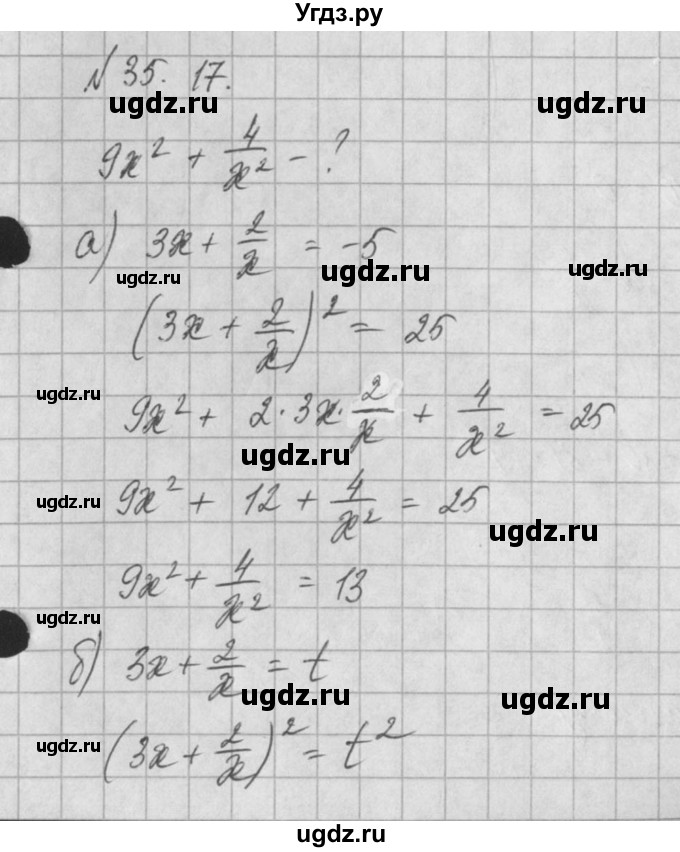 Угдз.ру
N 35. 17.
ugdz.ru ugdz.ru
9x² + 4/x² - ?
а) 3x + 2/x = -5
ugdz.ru ugdz.ru ugdz.ru
(3x + 2/x)² = 25
ugdz.ru
9x² + 2·3x·2/x + 4/x² = 25
ugdz.ru
9x² + 12 + 4/x² = 25
ugdz.ru ugdz.ru
9x² + 4/x² = 13
ugdz.ru
б) 3x + 2/x = t
ugdz.ru ugdz.ru
(3x + 2/x)² = t²
ugdz.ru
ugdz.ru